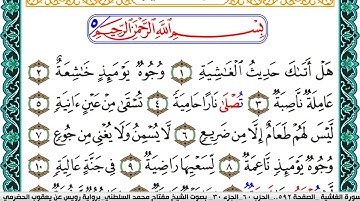 بِسْمِ اللَّهِ الرَّحْمَٰنِ الرَّحِيمِ
هَلْ أَتَىٰكَ حَدِيثُ الْغَٰشِيَةِ ١ وُجُوهٌ يَوْمَئِذٍ خَٰشِعَةٌ ٢
عَامِلَةٌ نَّاصِبَةٌ ٣ تُصْلَىٰ نَارًا حَامِيَةً ٤ تُسْقَىٰ مِنْ عَيْنٍ ءَانِيَةٍ ٥
لَّيْسَ لَهُمْ طَعَامٌ إِلَّا مِن ضَرِيعٍ ٦ لَّا يُسْمِنُ وَلَا يُغْنِي مِن جُوعٍ ٧
وُجُوهٌ يَوْمَئِذٍ نَّاعِمَةٌ ٨ لِّسَعْيِهَا رَاضِيَةٌ ٩ فِي جَنَّةٍ عَالِيَةٍ ١٠
سورة الغاشية . الصفحة ٥٩٢ . الحزب ٦٠ . الجزء ٣٠ . بصوت الشيخ مفتاح محمد السلطني . برواية رويس عن يعقوب الحضرمي